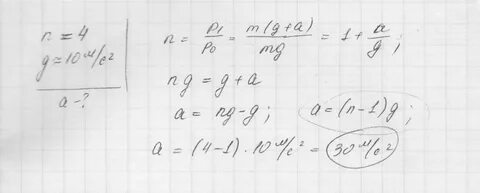 n = 4
g = 10 м/с²
a - ?
n = P₁/P₀ = m(g+a)/mg = 1 + a/g ;
ng = g + a
a = ng - g ; a = (n-1)g ;
a = (4-1) · 10 м/с² = 30 м/с²